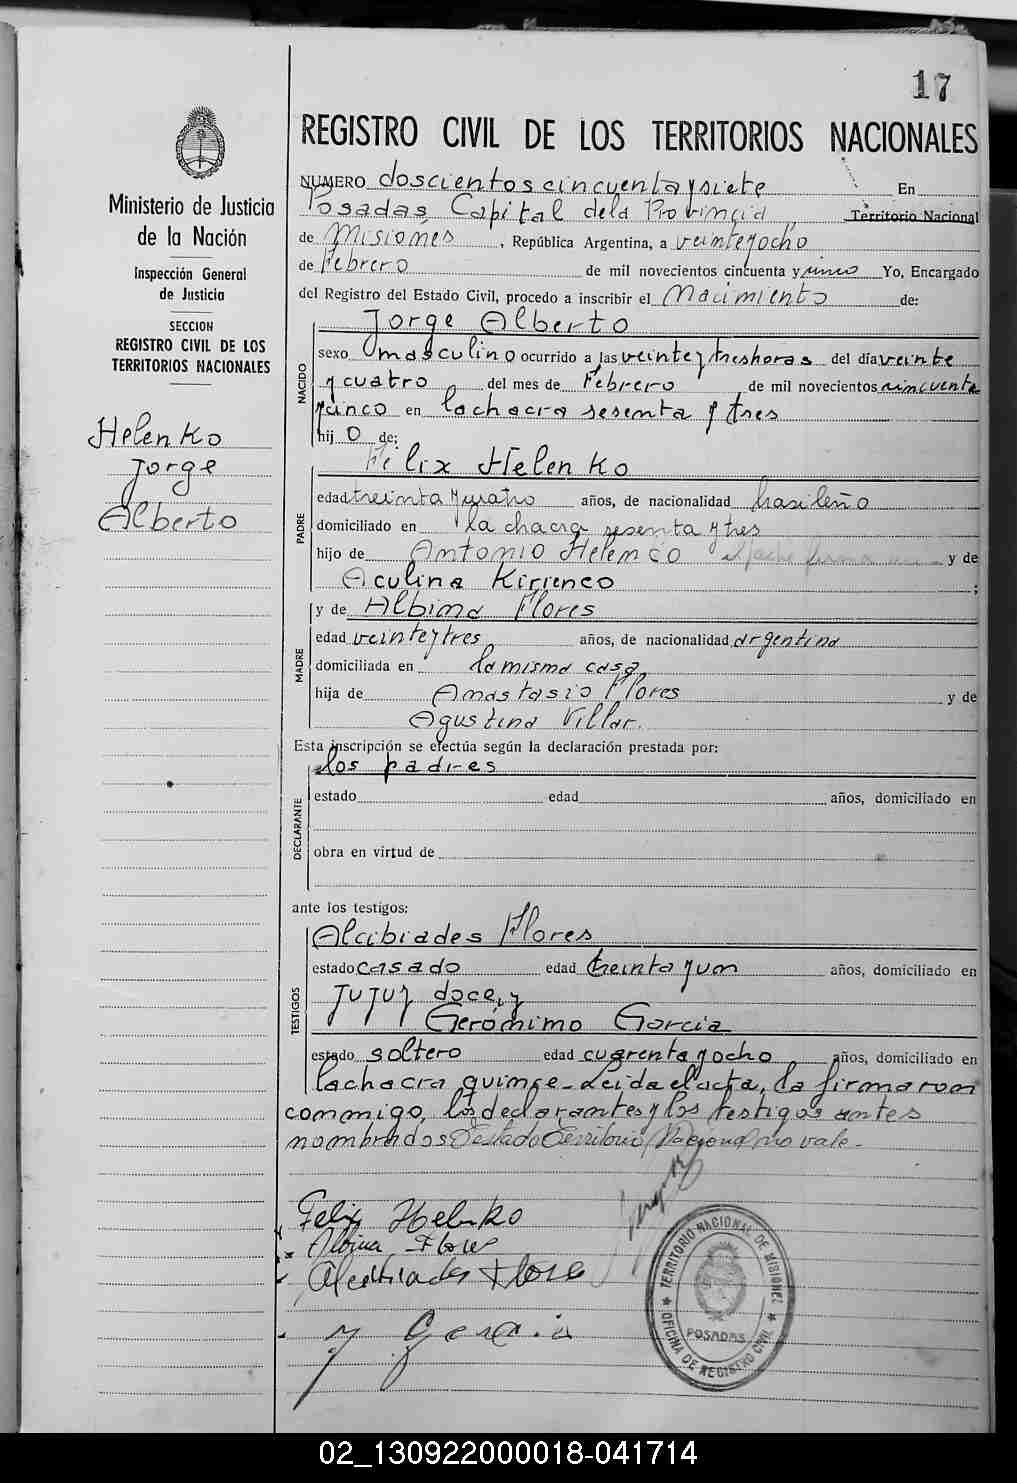 17
REGISTRO CIVIL DE LOS TERRITORIOS NACIONALES
NUMERO doscientos cincuenta y siete En
Posadas, Capital de la Provincia, Territorio Nacional
de Misiones, República Argentina, a veinte y ocho
de Febrero de mil novecientos cincuenta y cinco Yo, Encargado
del Registro del Estado Civil, procedo a inscribir el Nacimiento de:
Jorge Alberto
NACIDO
sexo masculino ocurrido a las veinte y tres horas del día veinte
y cuatro del mes de Febrero de mil novecientos cincuenta
y cinco en la chacra sesenta y tres
hij o de:
Félix Helenko
PADRE
edad treinta y cuatro años, de nacionalidad brasileño
domiciliado en la chacra sesenta y tres
hijo de Antonio Helenco y de
Aculina Kirienco ;
y de Albina Flores
MADRE
edad veinte y tres años, de nacionalidad argentina
domiciliada en la misma casa
hija de Anastasio Flores y de
Agustina Villar.
Esta inscripción se efectúa según la declaración prestada por:
los padres
DECLARANTE
estado edad años, domiciliado en
obra en virtud de
ante los testigos:
Alcibiades Flores
TESTIGOS
estado casado edad treinta y un años, domiciliado en
Jujuy doce, y
Gerónimo Garcia
estado soltero edad cuarenta y ocho años, domiciliado en
la chacra quince - Leida el acta, la firmaron
conmigo, los declarantes y los testigos antes
nombrados Testado Territorio Nacional no vale.-
Felix Helenko
Albina Flores
Alcibiades Flores
J Garcia
TERRITORIO NACIONAL DE MISIONES
POSADAS
OFICINA DE REGISTRO CIVIL
Ministerio de Justicia
de la Nación
Inspección General
de Justicia
SECCION
REGISTRO CIVIL DE LOS
TERRITORIOS NACIONALES
Helenko
Jorge
Alberto
02_130922000018-041714